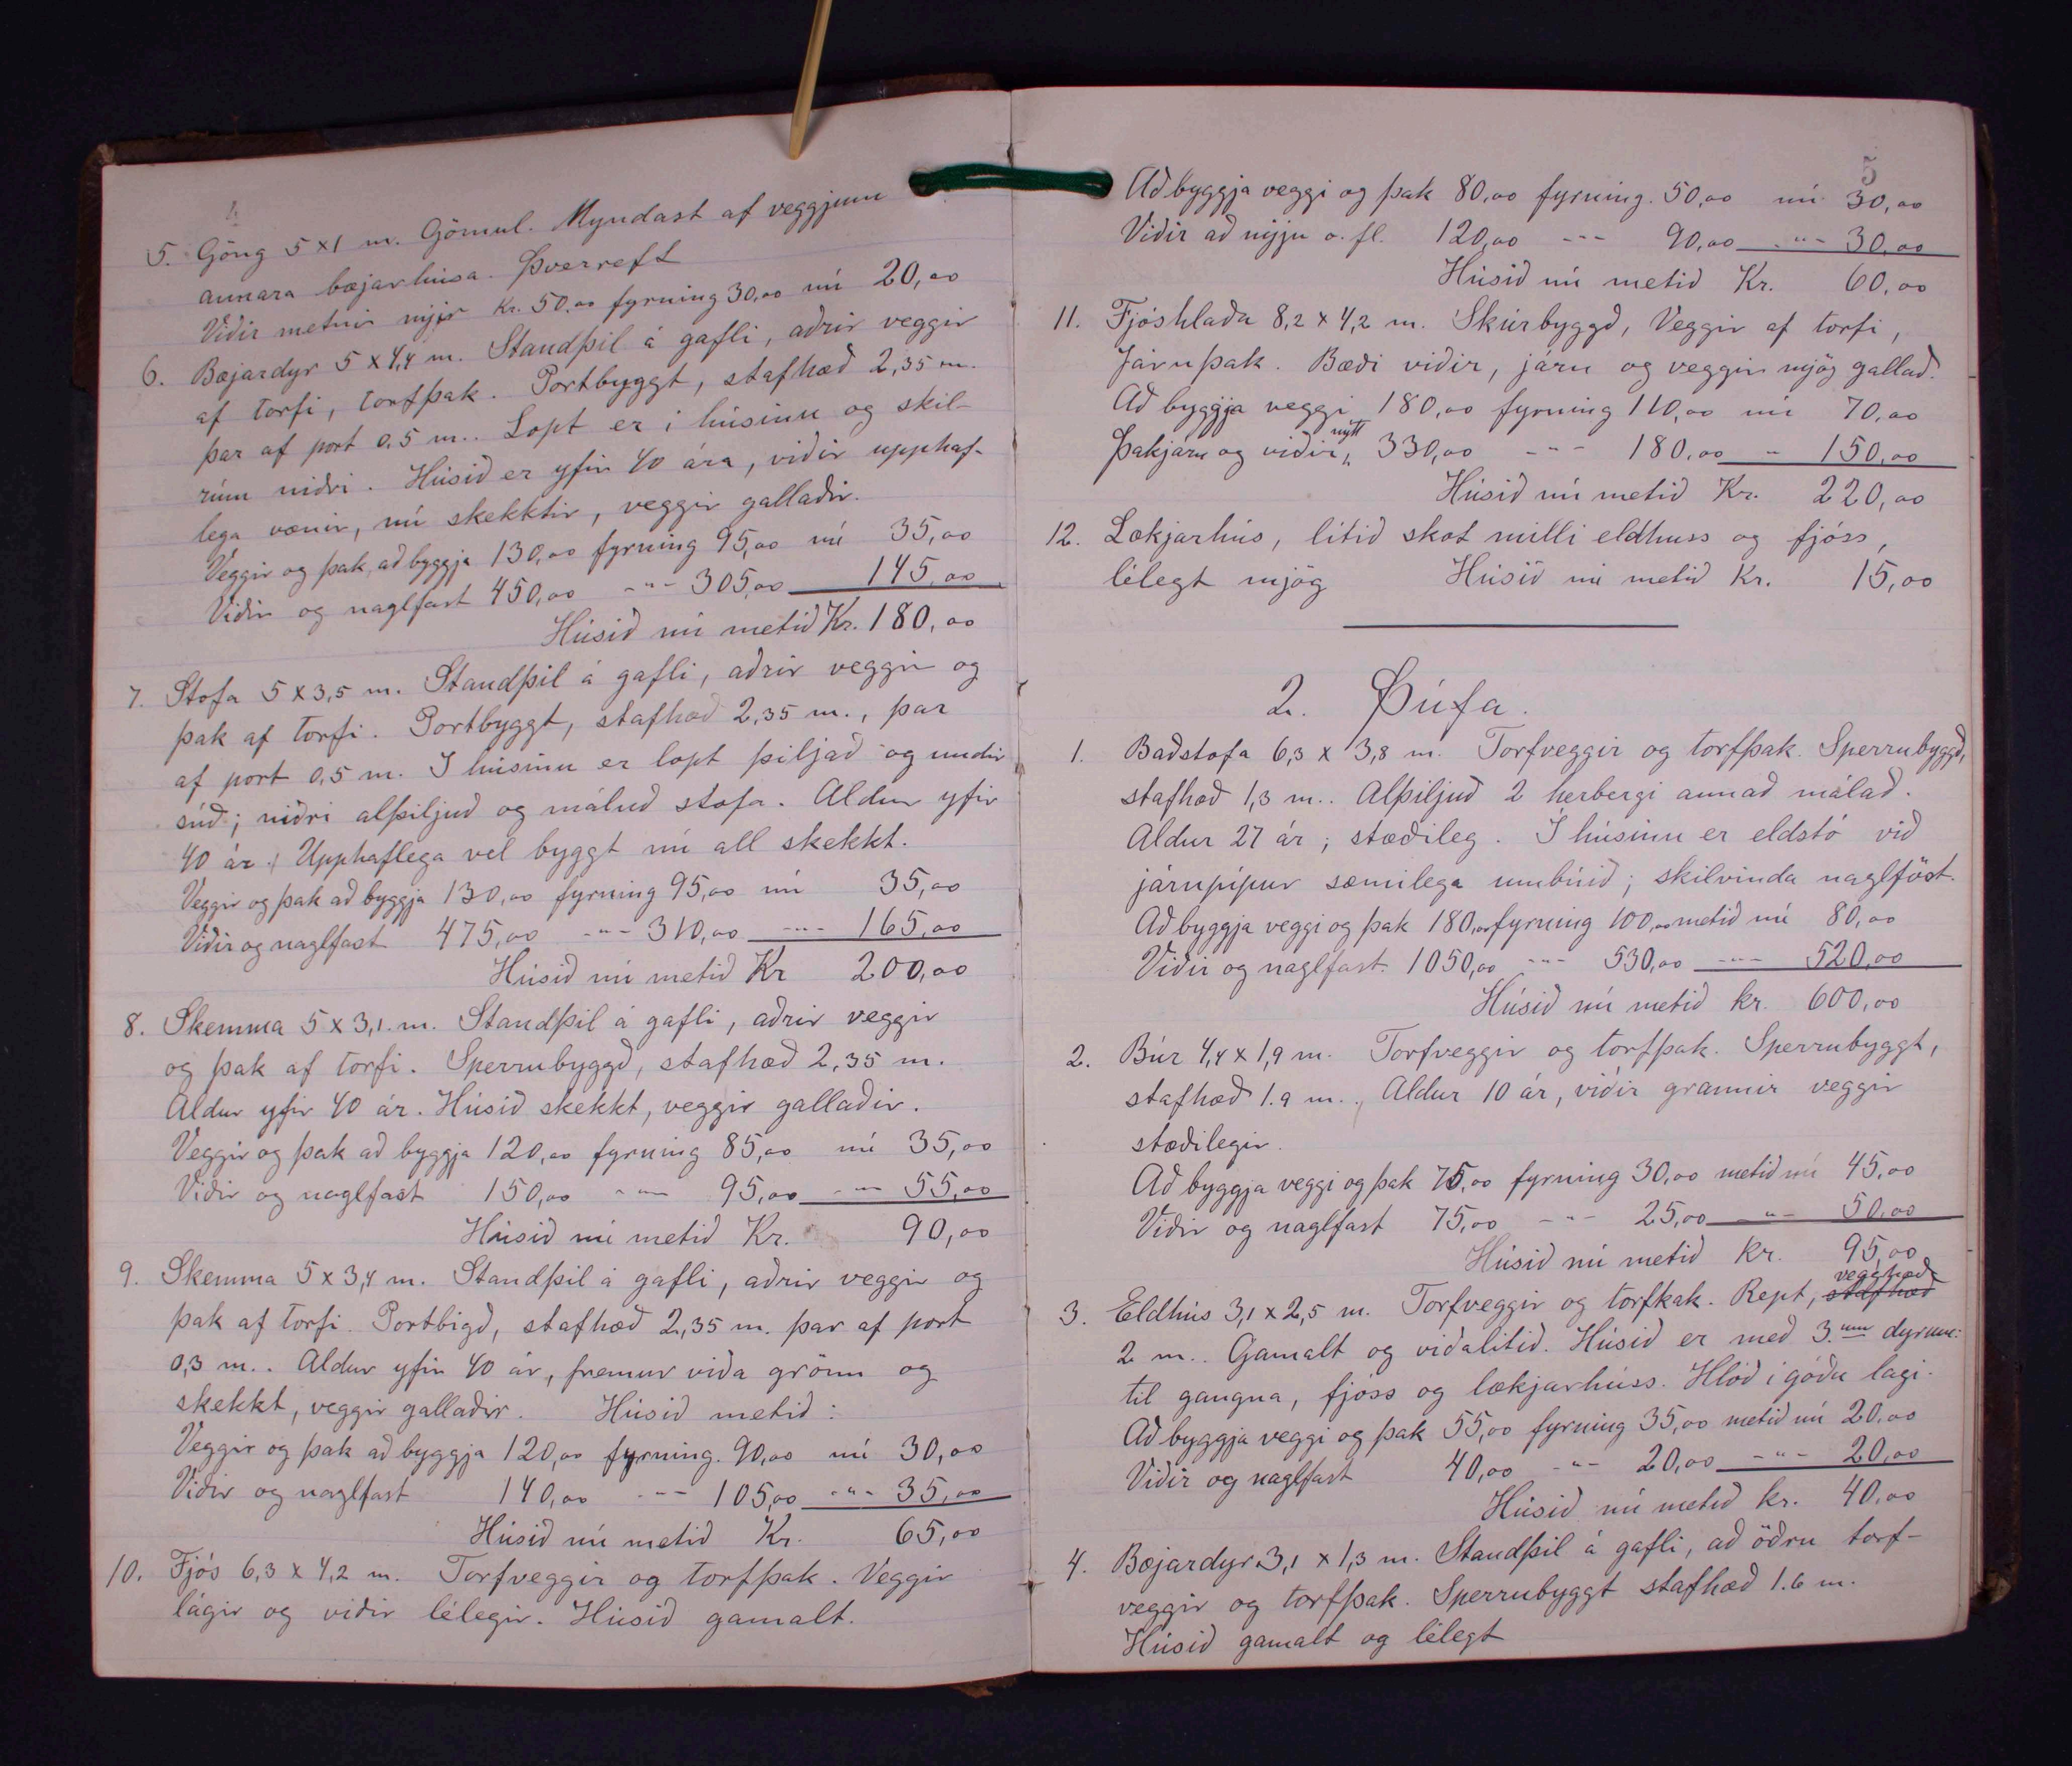 4
5. Göng 5 x 1 m. Gömul. Myndast af veggjum
annara bæjarhúsa. Þverreft
Viðir metnir nýjir kr. 50,00 fyrning 30,00 nú 20,00
6. Bæjardyr 5 x 4,4 m. Standþil á gafli, aðrir veggir
af torfi, torfþak. Portbyggt, stafhæð 2,35 m.
þar af port 0,5 m.. Lopt er í húsinu og skil-
rúm niðri. Húsið er yfir 40 ára, viðir upphaf-
lega vænir, nú skekktir, veggir gallaðir.
Veggir og þak, að byggja 130,00 fyrning 95,00 nú 35,00
Viðir og naglfast 450,00 -"- 305,00 145,00
Húsið nú metið Kr. 180,00
7. Stofa 5 x 3,5 m. Standþil á gafli, aðrir veggir og
þak af torfi. Portbyggt, stafhæð 2,35 m., þar
af port 0,5 m. Í húsinu er lopt þiljað og undir
súð; niðri alþiljuð og máluð stofa. Aldur yfir
40 ár. Upphaflega vel byggt nú all skekkt.
Veggir og þak að byggja 130,00 fyrning 95,00 nú 35,00
Viðir og naglfast 475,00 -"- 310,00 -"- 165,00
Húsið nú metið Kr 200,00
8. Skemma 5 x 3,1 m. Standþil á gafli, aðrir veggir
og þak af torfi. Sperrubyggð, stafhæð 2,35 m.
Aldur yfir 40 ár. Húsið skekkt, veggir gallaðir.
Veggir og þak að byggja 120,00 fyrning 85,00 nú 35,00
Viðir og naglfast 150,00 -"- 95,00 -"- 55,00
Húsið nú metið Kr. 90,00
9. Skemma 5 x 3,4 m. Standþil á gafli, aðrir veggir og
þak af torfi. Portbigð, stafhæð 2,35 m. þar af port
0,3 m.. Aldur yfir 40 ár, fremur viða grönn og
skekkt, veggir gallaðir. Húsið metið:
Veggir og þak að byggja 120,00 fyrning. 90,00 nú 30,00
Viðir og naglfast 140,00 -"- 105,00 -"- 35,00
Húsið nú metið Kr. 65,00
10. Fjós 6,3 x 4,2 m. Torfveggir og torfþak. Veggir
lágir og viðir lélegir. Húsið gamalt.
5
Að byggja veggi og þak 80,00 fyrning. 50,00 nú 30,00
Viðir að nýju o. fl. 120,00 -"- 90,00 -"- 30,00
Húsið nú metið Kr. 60,00
11. Fjóshlaða 8,2 x 4,2 m. Skúrbyggð, Veggir af torfi,
Járnþak. Bæði viðir, járn og veggir mjög gallað.
Að byggja veggi 180,00 fyrning 110,00 nú 70,00
Þakjárn og viðir nýtt 330,00 -"- 180,00 " 150,00
Húsið nú metið Kr. 220,00
12. Lækjarhús, lítið skot milli eldhúss og fjóss,
lélegt mjög Húsið nú metið Kr. 15,00
2. Þúfa.
1. Baðstofa 6,3 x 3,8 m. Torfveggir og torfþak. Sperrubyggð,
stafhæð 1,3 m.. Alþiljuð 2 herbergi annað málað.
Aldur 27 ár; stæðileg. Í húsinu er eldstó við
járnpípur sæmilega umbúið; skilvinda naglföst.
Að byggja veggi og þak 180,00 fyrning 100,00 metið nú 80,00
Viðir og naglfast. 1050,00 -"- 530,00 -"- 520,00
Húsið nú metið kr. 600,00
2. Búr 4,4 x 1,9 m. Torfveggir og torfþak. Sperrubyggt,
stafhæð 1.9 m.., Aldur 10 ár, viðir grannir veggir
stæðilegir.
Að byggja veggi og þak 75,00 fyrning 30,00 metið nú 45,00
Viðir og naglfast 75,00 -"- 25,00 -"- 50,00
Húsið nú metið kr. 95,00
3. Eldhús 3,1 x 2,5 m. Torfveggir og torfkak. Rept, stafhæð vegghæð
2 m.. Gamalt og viðalítið. Húsið er með 3.um dyrum:
til gangna, fjóss og lækjarhúss. Hlóð í góðu lagi.
Að byggja veggi og þak 55,00 fyrning 35,00 metið nú 20,00
Viðir og naglfast 40,00 -"- 20,00 -"- 20,00
Húsið nú metið kr. 40,00
4. Bæjardyr 3,1 x 1,3 m. Standþil á gafli, að öðru torf-
veggir og torfþak. Sperrubyggt stafhæð 1.6 m.
Húsið gamalt og lélegt